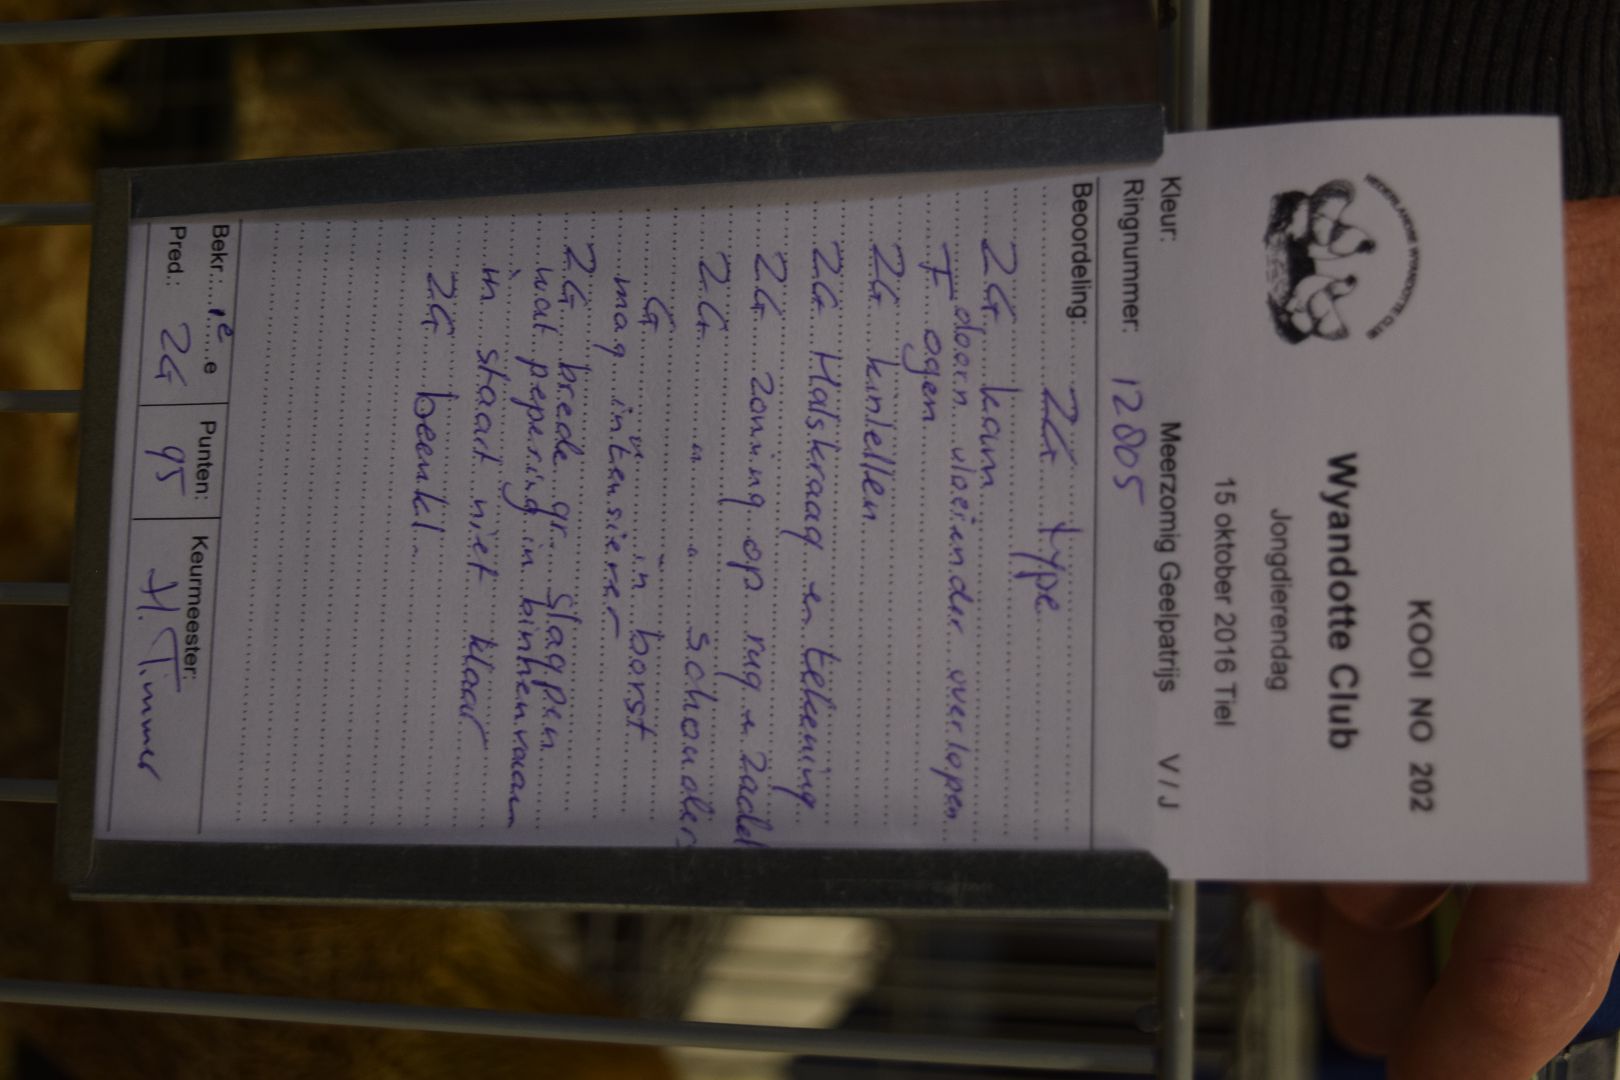 KOOI NO 202
Wyandotte Club
Jongdierendag
15 oktober 2016 Tiel
NEDERLANDSE WYANDOTTE CLUB
Kleur: Meerzomig Geelpatrijs V / J
Ringnummer: 12805
Beoordeling: ZG type
ZG kam
doorn vloeiender overlopen
F ogen
ZG kinlellen
ZG Halskraag en tekening
ZG zoming op rug en zadel
ZG " " schouders
G " in borst
mag intensiever
ZG brede gr. slagpen
wat pepering in binnenvaan
in staart niet klaar
ZG beenkl.
Bekr.: 1e e Punten: Keurmeester:
Pred.: ZG 95 H. Timmer